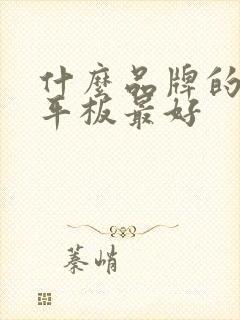 什麼品牌的
平板最好
蓁峭